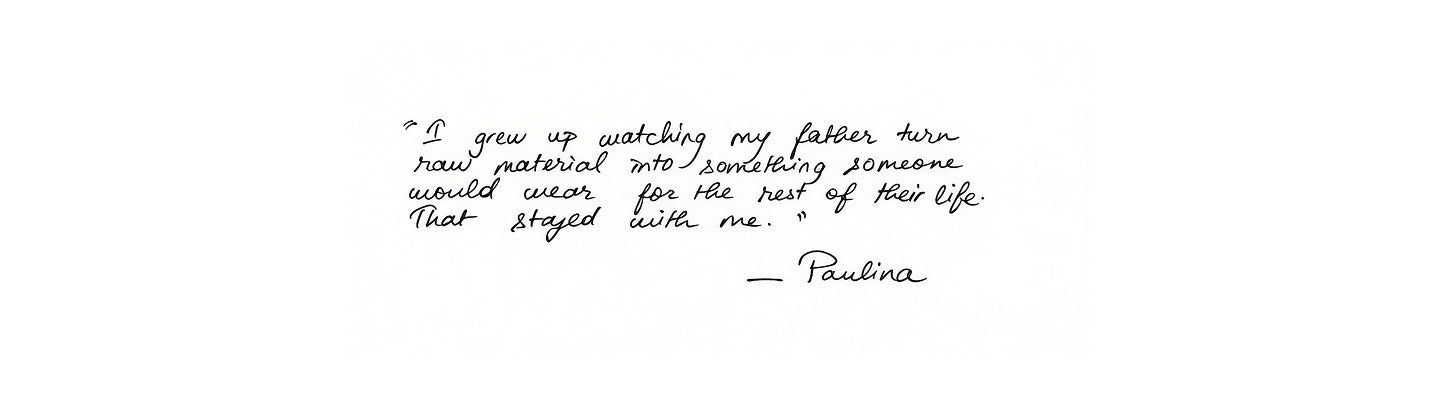 "I grew up watching my father turn
raw material into something someone
would wear for the rest of their life.
That stayed with me."
— Paulina